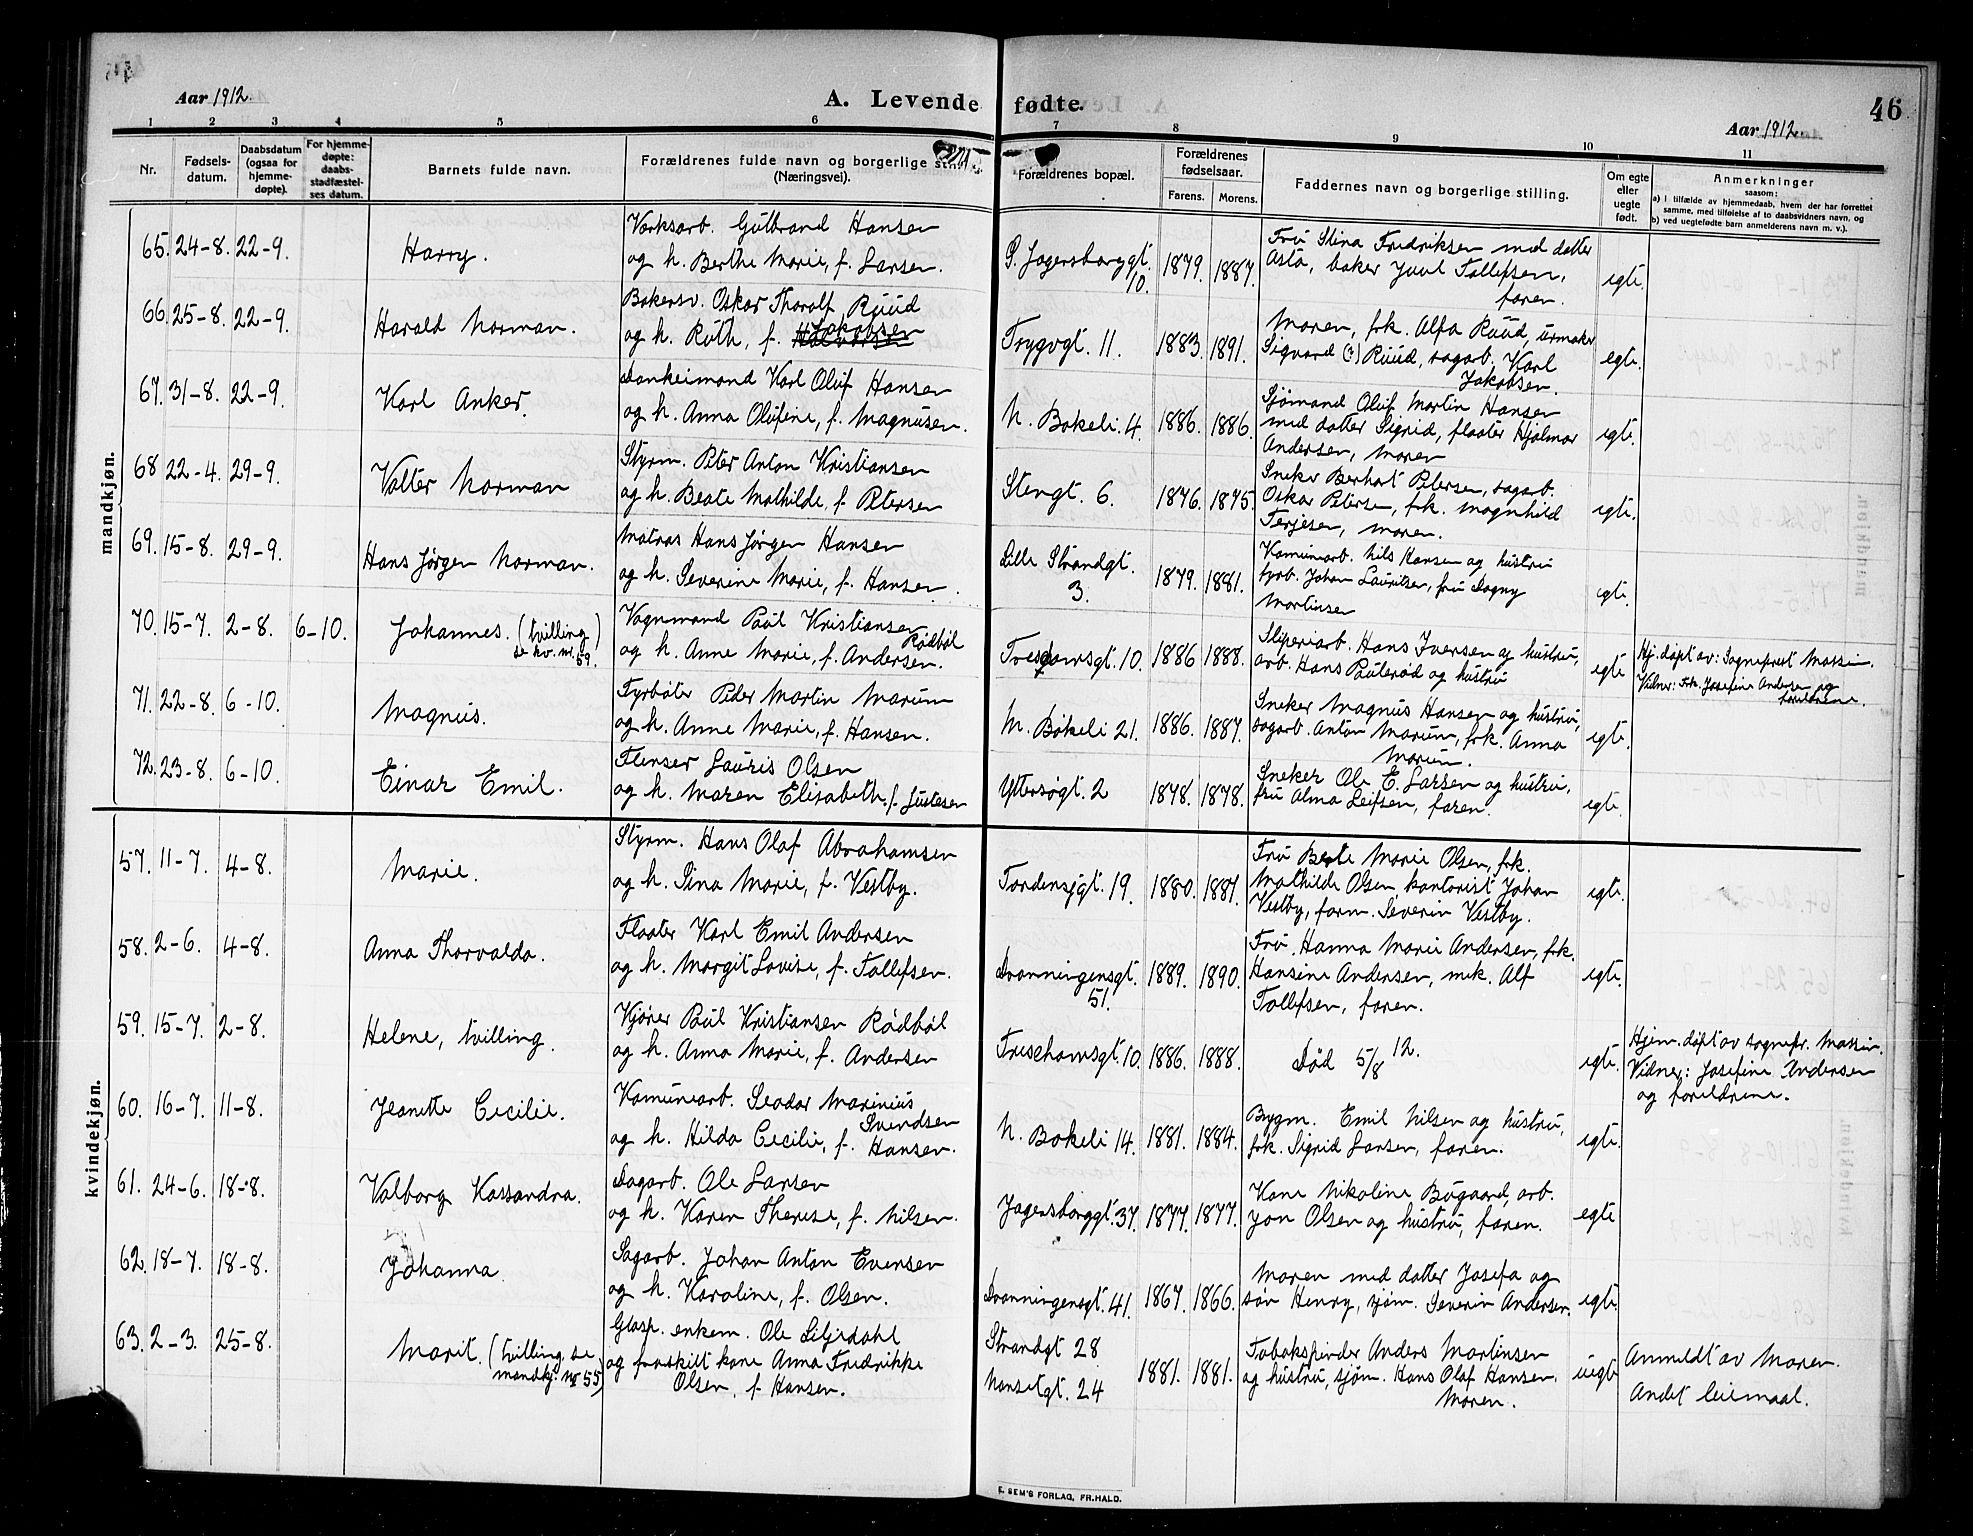 Aar 1912. A. Levende fødte. Aar 1912. 46
1 2 3 4 5 6 7 8 9 10 11
Nr. Fødsels-datum. Daabsdatum (ogsaa for hjemme-døpte). For hjemme-døpte: daabs-stadfæstel-ses datum. Barnets fulde navn. Forældrenes fulde navn og borgerlige stilling (Næringsvei). Forældrenes bopæl. Forældrenes fødselsaar. Farens. Morens. Faddernes navn og borgerlige stilling. Om egte eller uegte født. Anmerkninger saasom:
a) I tilfælde av hjemmedaab, hvem der har forrettet samme, med tilføielse af to daabsvidners navn, og
b) ved uegtefødte barn anmelderens navn m. v.).
mandkjøn.
65. 24-8. 22-9. Harry. Verksarb. Gulbrand Hansen
og h. Berthe Marie, f. Larsen. S. Jegersborggt. 10. 1879. 1887.
Fru Stina Fredriksen med datter
Asta, baker Juul Tollefsen,
faren. egte.
66. 25-8. 22-9. Harald Norman. Bakersv. Oskar Thoralf Ruud
og h. Ruth, f. Jakobsen Trygvgt. 11. 1883. 1891.
Moren, frk. Alfa Ruud, urmaker
Sigvard (?) Ruud, sagarb. Karl
Jakobsen. egte.
67. 31-8. 22-9. Karl Anker. Donkeimand Karl Oluf Hansen
og h. Anna Olufine, f. Magnusen. N. Bøkeli. 4. 1886. 1886.
Sjømand Oluf Martin Hansen
med datter Sigrid, fløater Hjalmar
Andersen, moren egte.
68 22-4. 29-9. Valter Norman Styrm. Peter Anton Kristiansen
og h. Beate Mathilde, f. Petersen Stengt. 6. 1876. 1875.
Sneker Berhart Petersen, sagarb.
Oskar Petersen, frk. Magnhild
Terjesen, moren. egte.
69. 15-8. 29-9. Hans Jørgen Norman. Matros Hans Jørgen Hansen
og h. Severine Marie, f. Hansen. Lille Strandgt. 3. 1879. 1881.
Komunearb. Nils Hansen og hustru
tyrb. Johan Lauritsen, fru Dagny
Martinsen egte.
70. 15-7. 2-8. 6-10. Johannes. (tvilling se kv. nr. 59.) Vognmand Paul Kristiansen Rødbøl
og h. Anne Marie, f. Andersen. Treschowsgt. 10. 1886 1888.
Sliperiarb. Hans Iversen og hustru,
arb. Hans Pauterød og hustru egte
Hj. døpt av: Sogneprest Massin.
Vidner: Frk. Josefine Andersen og
foreldrene.
71. 22-8. 6-10. Magnus. Fyrbøter Peder Martin Marum
og h. Anne Marie, f. Hansen. M. Bøkeli 21. 1886. 1887.
Sneker Magnus Hansen og hustru,
sagarb. Anton Marum, frk. Anna
Marum. egte.
72. 23-8. 6-10. Einar Emil. Flenser Lauris Olsen
og h. Maren Elisabeth, f. Justesen Yttersøgt. 2 1878. 1878.
Sneker Ole E. Larsen og hustru,
fru Alma Leifsen, faren. egte.
kvindekjøn.
57. 11-7. 4-8. Marie. Styrm. Hans Olaf Abrahamsen
og h. Sina Marie, f. Vestby. Tordensjgt. 19. 1880. 1887.
Fru Berte Marie Olsen, frk.
Mathilde Olsen kontorist Johan
Vestby, form. Severin Vestby. egte.
58. 2-6. 4-8. Anna Thorvalda. Fløater Karl Emil Andersen
og h. Margit Lovise, f. Tollefsen. Dronningensgt. 51. 1889. 1890.
Fru Hanna Marie Andersen, frk.
Hansine Andersen, mek. Alf
Tollefsen, faren. egte.
59. 15-7. 2-8. Helene, tvilling. Kjører Paul Kristiansen Rødbøl
og h. Anna Marie, f. Andersen Treschowsgt. 10. 1886. 1888.
Død 5/8 12. egte.
Hjem. døpt av sognepr. Massin.
Vidner: Josefine Andersen
og foreldrene.
60. 16-7. 11-8. Jeanette Cecilie. Komunearb. Teodor Marinius Svendsen
og h. Hilda Cecilie, f. Hansen. N. Bøkeli 14. 1881. 1884.
Bygm. Emil Nilsen og hustru,
frk. Sigrid Larsen, faren. egte.
61. 24-6. 18-8. Valborg Kassandra. Sagarb. Ole Larsen
og h. Karen Therese, f. Nilsen. Jegersborggt. 37. 1877. 1877.
Kone Nikoline Bugaard, arb.
Jon Olsen og hustru, faren. egte
62. 18-7. 18-8. Johanna Sagarb. Johan Anton Evensen
og h. Karoline, f. Olsen. Dronningensgt. 41. 1867. 1866.
Moren med datter Josefa og
søn Henry, sjøm. Severin Andersen. egte.
63. 2-3. 25-8. Marit. (tvilling, se mandkj. nr 55) Glasp. enkem. Ole Liljedahl
og fraskilt kone Anna Fredrikke
Olsen, f. Hansen. Strandgt 28
Nansetgt. 24 1881. 1881.
Tobakspinder Anders Martinsen
og hustru, sjøm. Hans Olaf Hansen,
moren. uegte
Anmeldt av Moren.
Andet leiermaal.
E. SEM'S FORLAG, FR.HALD.